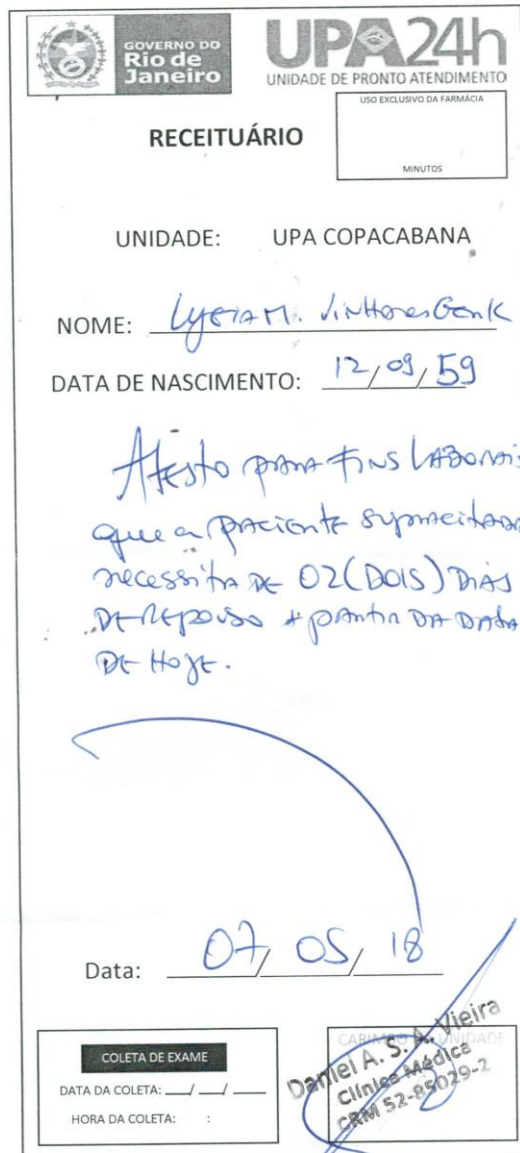 GOVERNO DO
Rio de
Janeiro
UPA24h
UNIDADE DE PRONTO ATENDIMENTO
USO EXCLUSIVO DA FARMÁCIA
MINUTOS
RECEITUÁRIO
UNIDADE: UPA COPACABANA
NOME: Lygia M. Vinhores Genk
DATA DE NASCIMENTO: 12/09/59
Atesto para fins laborais
que a paciente supracitada
necessita de 02 (DOIS) DIAS
DE REPOUSO a partir DA DATA
DE HOJE.
Data: 07/05/18
COLETA DE EXAME
DATA DA COLETA: ___/___/___
HORA DA COLETA: :
CARIMBO DA UNIDADE
Daniel A. S. A. Vieira
Clínica Médica
CRM 52-85029-2